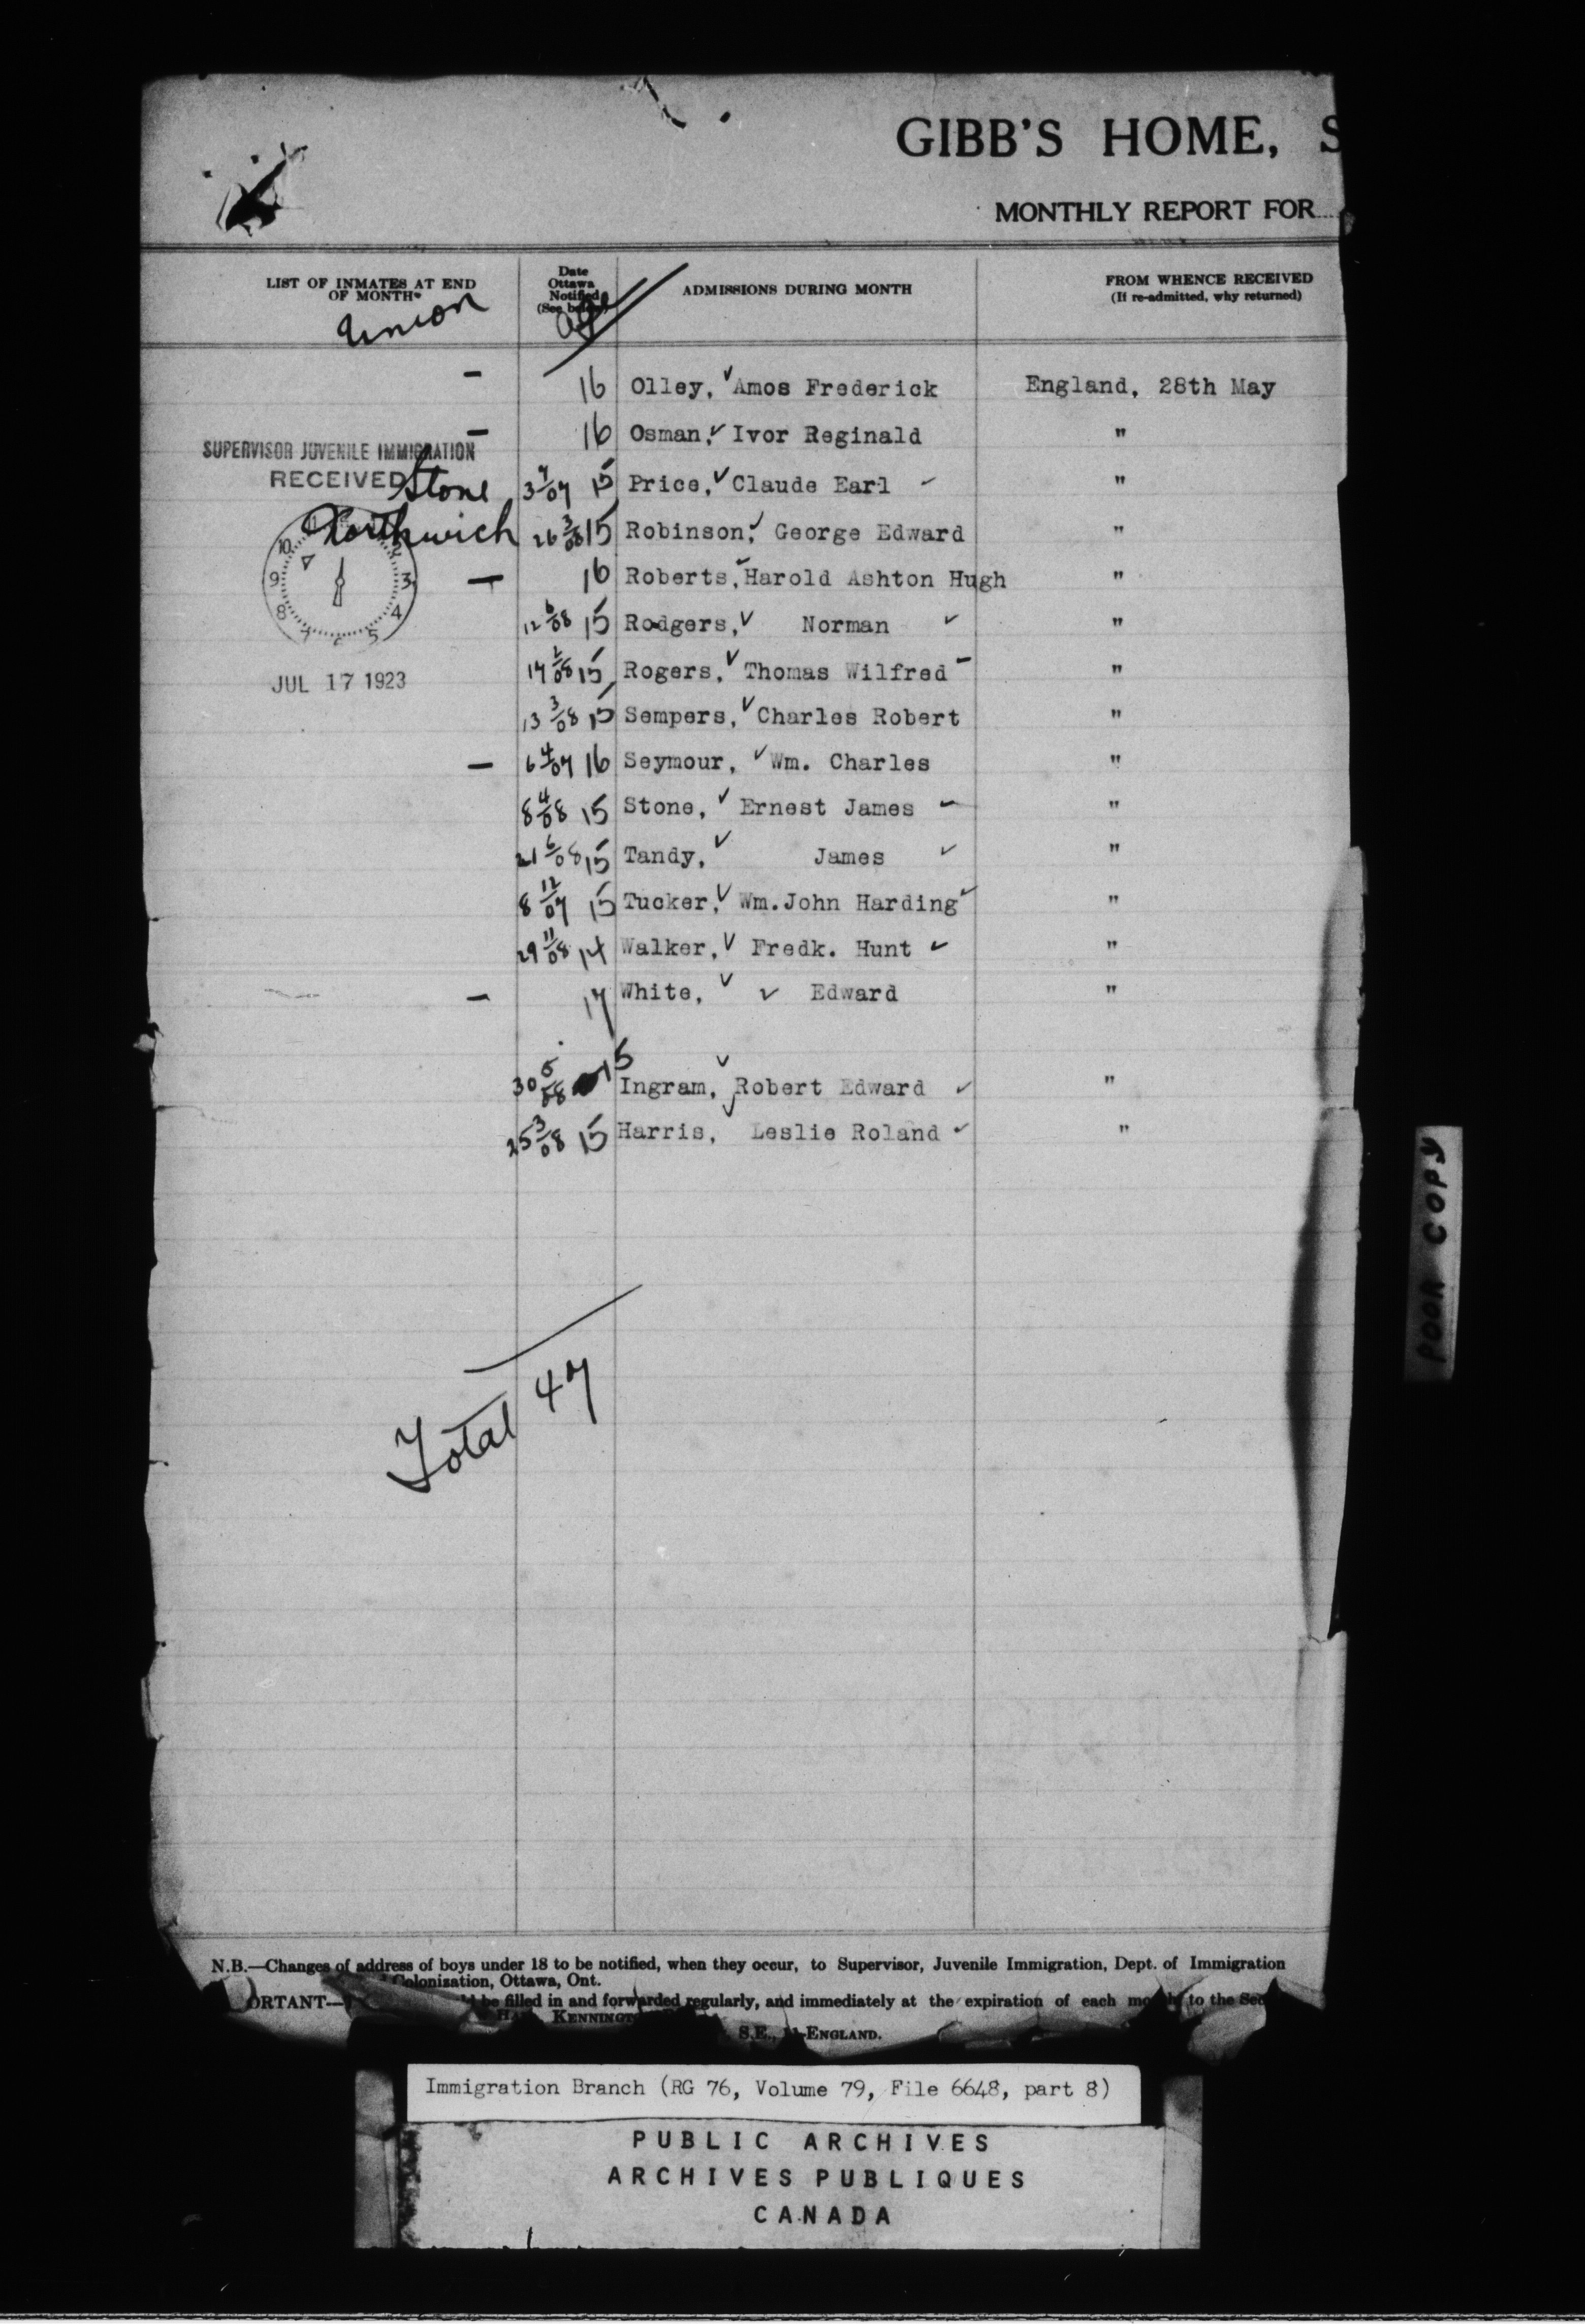 GIBB'S HOME, S
MONTHLY REPORT FOR
LIST OF INMATES AT END OF MONTH
Date Ottawa Notified (See below)
ADMISSIONS DURING MONTH
FROM WHENCE RECEIVED
(If re-admitted, why returned)
Union
age
- 16 Olley, ✓ Amos Frederick England, 28th May
- 16 Osman, ✓ Ivor Reginald "
SUPERVISOR JUVENILE IMMIGRATION
RECEIVED
Stone 3 7/07 15 Price, ✓ Claude Earl ✓ "
Northwich 26 3/08 15 Robinson, ✓ George Edward "
- 16 Roberts, ✓ Harold Ashton Hugh "
12 6/08 15 Rodgers, ✓ Norman ✓ "
14 2/08 15 Rogers, ✓ Thomas Wilfred - "
JUL 17 1923
13 3/08 15 Sempers, ✓ Charles Robert "
- 6 4/07 16 Seymour, ✓ Wm. Charles "
8 4/08 15 Stone, ✓ Ernest James ✓ "
21 6/08 15 Tandy, ✓ James ✓ "
8 12/07 15 Tucker, ✓ Wm. John Harding ✓ "
29 11/08 14 Walker, ✓ Fredk. Hunt ✓ "
- 17 White, ✓ ✓ Edward "
30 5/08 15 Ingram, ✓ Robert Edward ✓ "
25 3/08 15 Harris, ✓ Leslie Roland ✓ "
Total 47
POOR COPY
N.B.—Changes of address of boys under 18 to be notified, when they occur, to Supervisor, Juvenile Immigration, Dept. of Immigration
Colonization, Ottawa, Ont.
ORTANT— be filled in and forwarded regularly, and immediately at the expiration of each month to the Sec
S.E., ENGLAND.
Immigration Branch (RG 76, Volume 79, File 6648, part 8)
PUBLIC ARCHIVES
ARCHIVES PUBLIQUES
CANADA